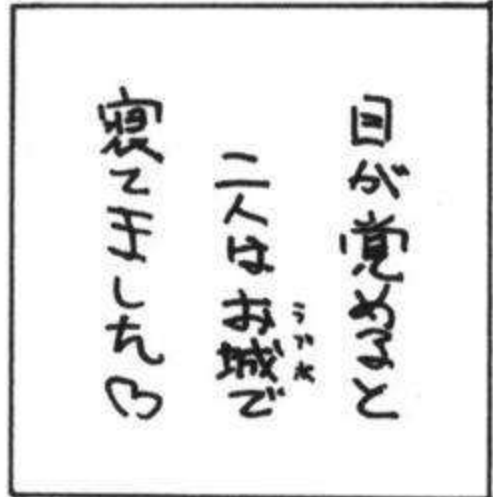 目が覚めると
二人はお城で
らぶホ
寝てました♡